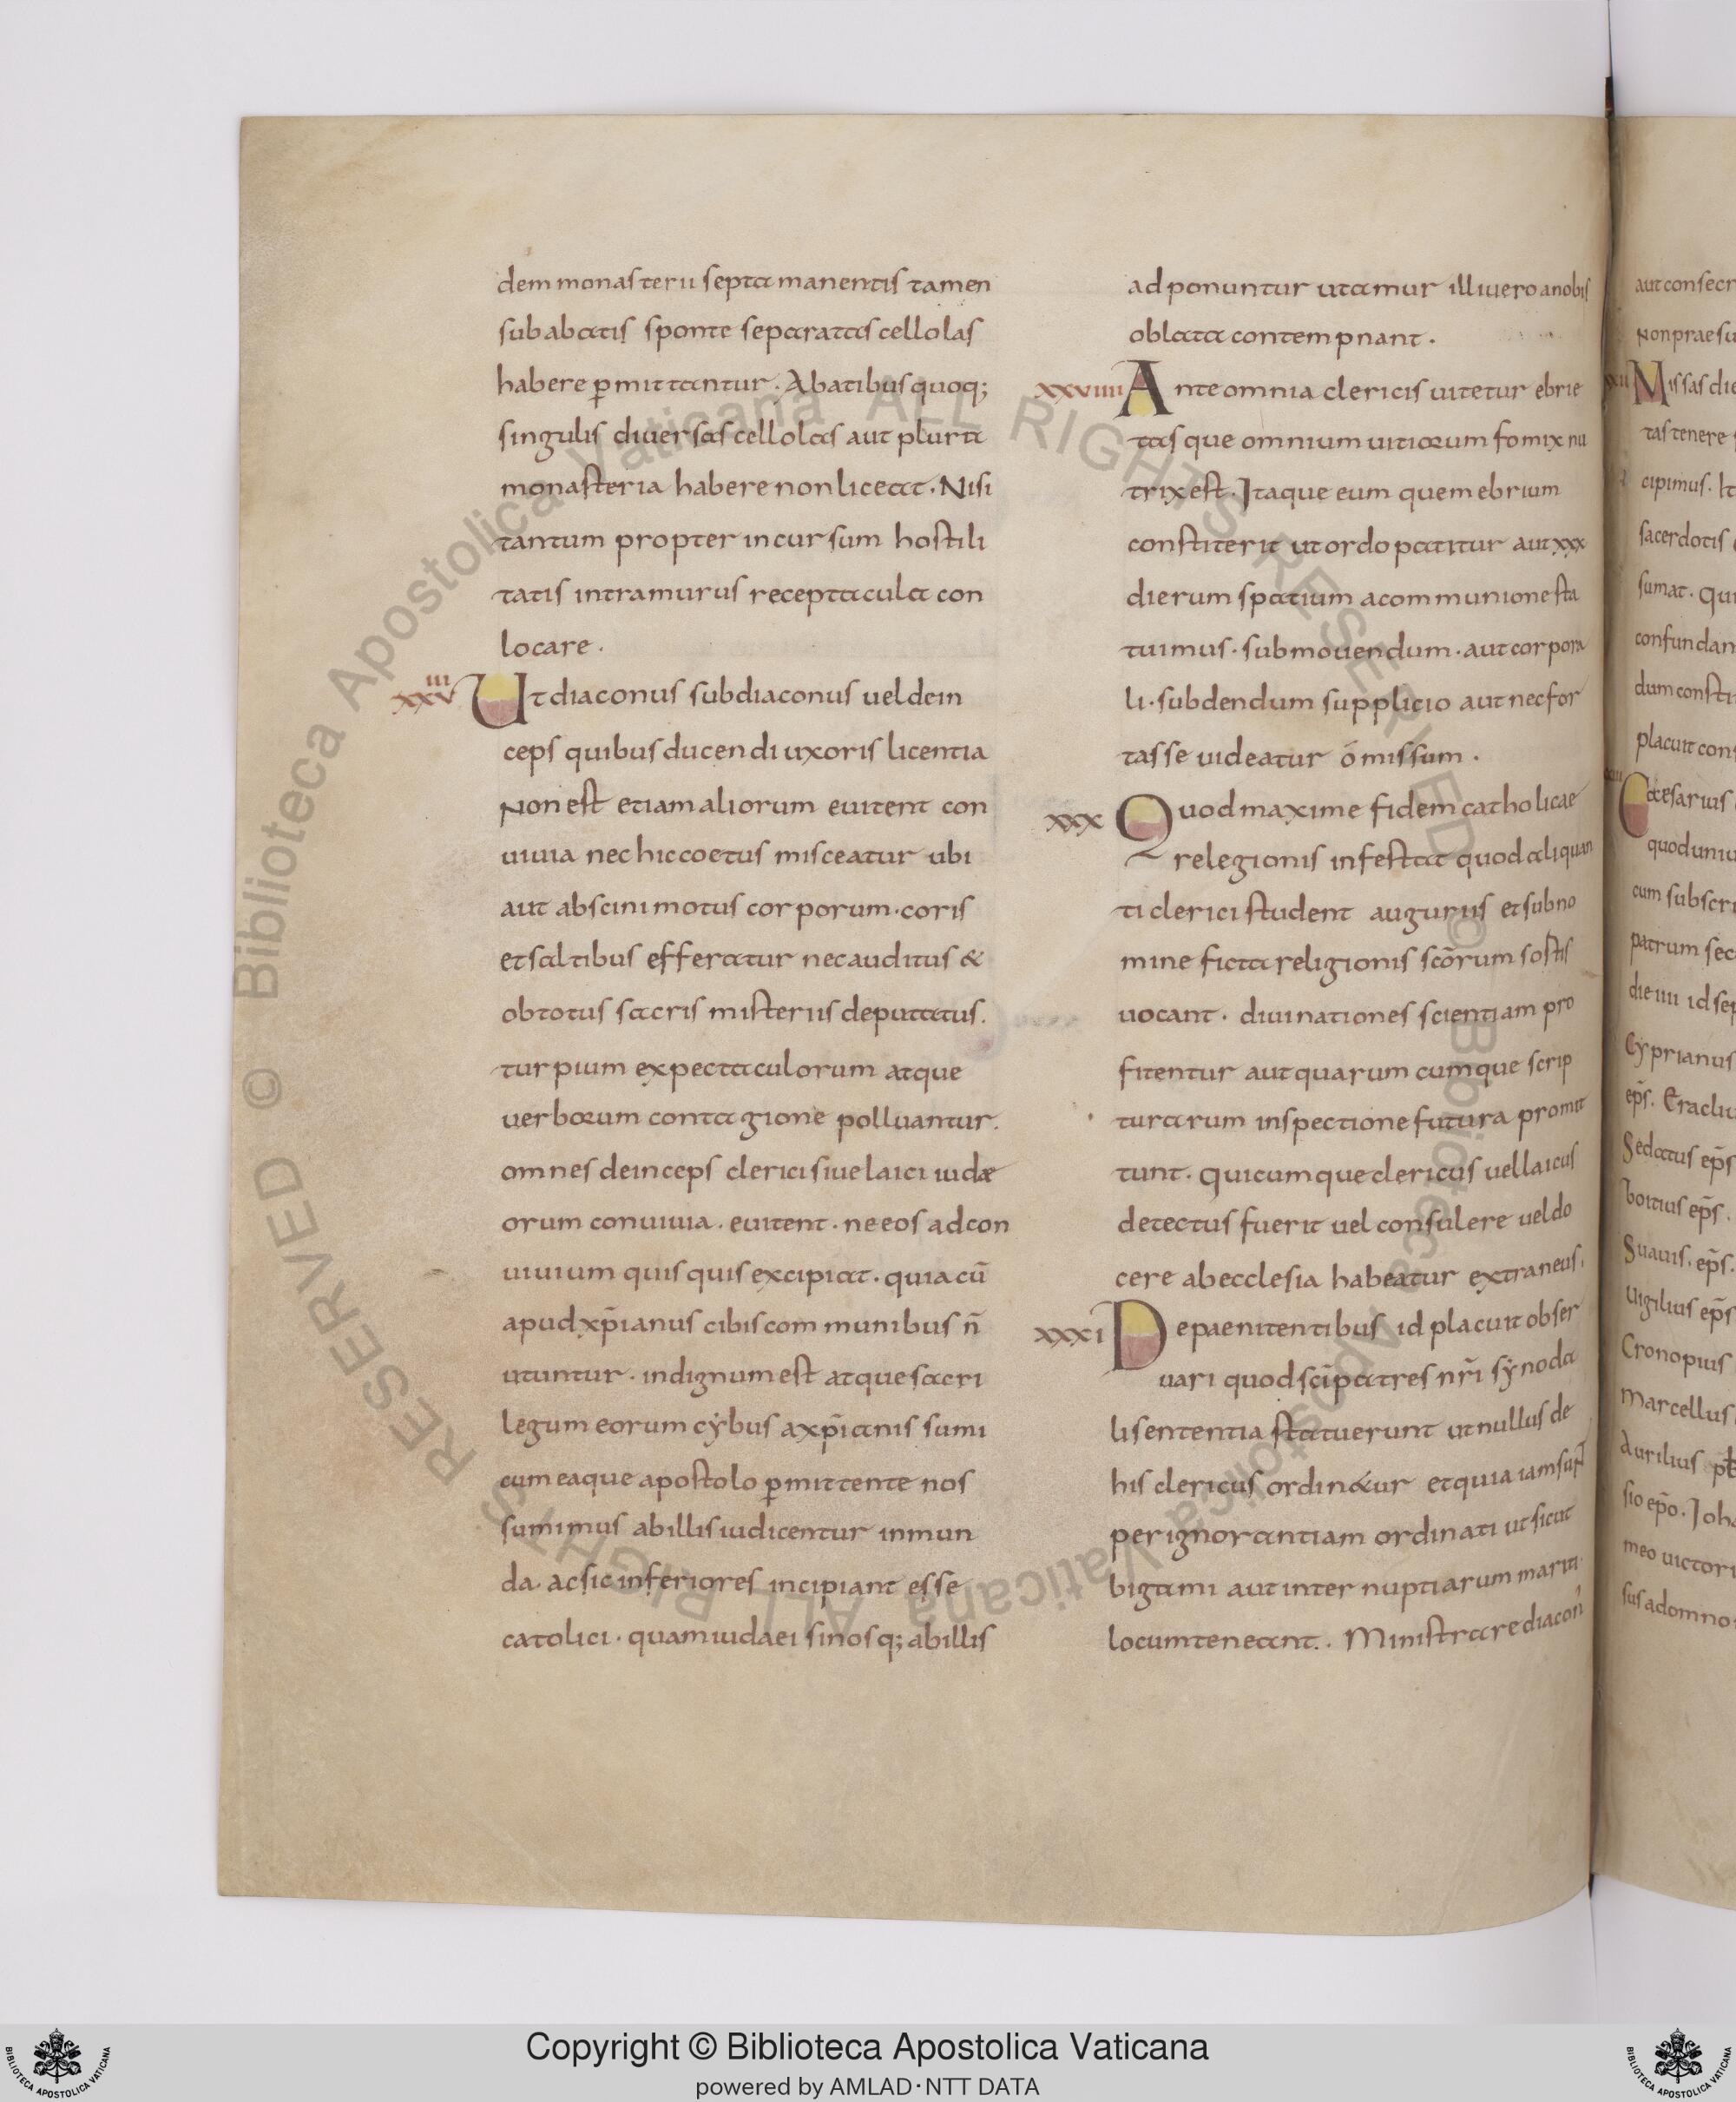 dem monasterii septa manentis tamen
sub abatis sponte separatas cellolas
habere p̲mittantur. Abatibus quoq;
singulis diversas cellolas aut plura
monasteria habere non liceat. Nisi
tantum propter incursum hostili
tatis intra murus receptacula con
locare.
xxviii Ut diaconus subdiaconus vel dein
ceps quibus ducendi uxoris licentia
Non est etiam aliorum evitent con
vivia nec hic coetus misceatur ubi
aut abscini motus corporum. coris
et saltibus efferatur nec auditus &
obtotus sacris misteriis deputatus.
turpium expectaculorum atque
verborum contagione polluantur.
omnes deinceps clerici sive laici iudæ
orum convivia. evitent. ne eos ad con
vivium quisquis excipiat. quia cū
apud xp̄ianus cibis communibus n̄
utuntur. indignum est atque sacri
legum eorum cẏbus a xp̄ianis sumi
cum ea que apostolo p̲mittente nos
sumimus ab illis iudicentur inmun
da. ac sic inferiores incipiant esse
catolici. quam iudaei si nos q; ab illis
adponuntur utamur illi vero a nobis
oblata contempnant.
xxviiii Ante omnia clericis vitetur ebrie
tas que omnium vitiorum fomix nu
trix est. Itaque eum quem ebrium
constiterit ut ordo patitur aut xxx
dierum spatium a communione sta
tuimus. submovendum. aut corpora
li. subdendum supplicio aut nec for
tasse videatur ōmissum.
xxx Quod maxime fidem catholicae
relegionis infestat quod aliquan
ti clerici student auguriis et sub no
mine ficta religionis sc̄orum sostis
vocant. divinationes scientiam pro
fitentur aut quarumcumque scrip
turarum inspectione futura promit
tunt. quicumque clericus vel laicus
detectus fuerit vel consulere vel do
cere ab ecclesia habeatur extraneus.
xxxi De paenitentibus id placuit obser
vari quod sc̄i patres nr̄i sẏnoda
li sententia statuerunt ut nullus de
his clericus ordin&ur et qui a iam sup̄
per ignorantiam ordinati ut sicut
bigami aut internuptiarum mariti
locum teneant. Ministrare diacon̄
aut consecr
Non praesu
Missas die
tas tenere
cipimus. It
sacerdotis
sumat. Qui
confundam
dum consti
placuit cons
Caesarius
quod uniu
cum subscri
patrum sec
die iiii id sep
Cẏprianus
ep̄s. Eracliu
Sedatus ep̄s
boitius ep̄s.
Suavis. ep̄s.
Vigilius ep̄s
Cronopius
Marcellus
Aurilius
sio ep̄o. Joha
meo victori
sus a domno
© Biblioteca Apostolica Vaticana ALL RIGHTS RESERVED
© Biblioteca Apostolica Vaticana ALL RIGHTS RESERVED
Copyright © Biblioteca Apostolica Vaticana
powered by AMLAD·NTT DATA
BIBLIOTECA APOSTOLICA VATICANA
BIBLIOTECA APOSTOLICA VATICANA